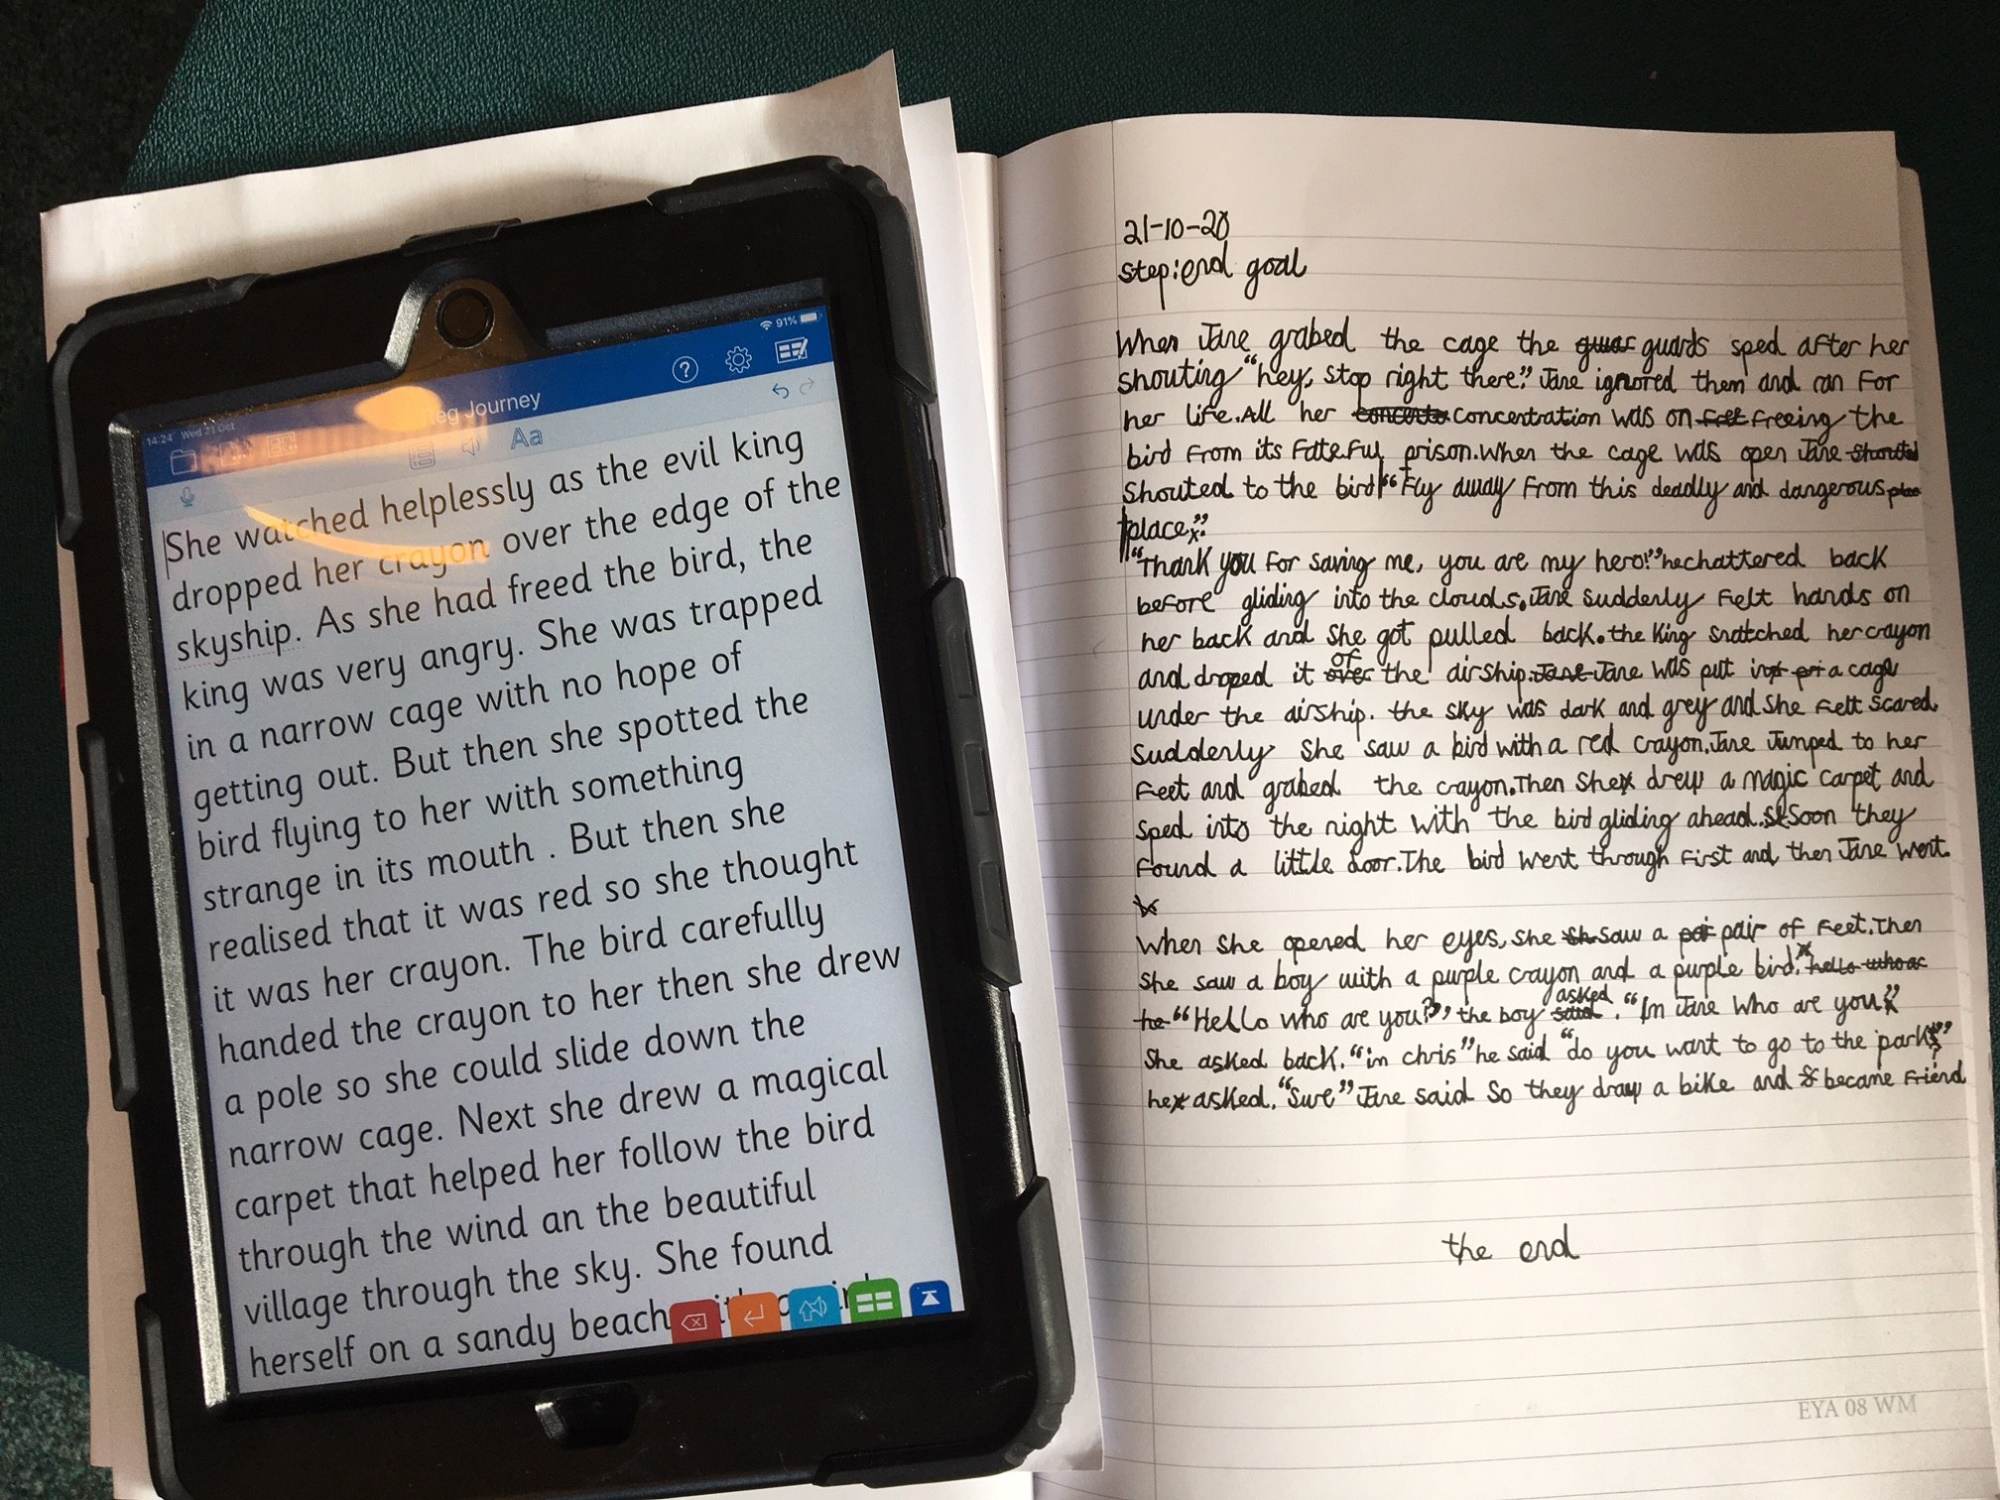 14:24 Wed 21 Oct
91%
?
Journey
Aa
She watched helplessly as the evil king
dropped her crayon over the edge of the
skyship. As she had freed the bird, the
king was very angry. She was trapped
in a narrow cage with no hope of
getting out. But then she spotted the
bird flying to her with something
strange in its mouth . But then she
realised that it was red so she thought
it was her crayon. The bird carefully
handed the crayon to her then she drew
a pole so she could slide down the
narrow cage. Next she drew a magical
carpet that helped her follow the bird
through the wind an the beautiful
village through the sky. She found
herself on a sandy beach
21-10-20
step:end goal
When Jane grabed the cage the guards sped after her
shouting "hey, stop right there." Jane ignored them and ran For
her life. All her concentration was on freeing the
bird From its Fateful prison. When the cage was open Jane
shouted to the bird "Fly away From this deadly and dangerous
place."
"Thank you For saving me, you are my hero!" he chattered back
before gliding into the clouds. Jane suddenly Felt hands on
her back and she got pulled back. the King snatched her crayon
and droped it of the airship. Jane was put in a cage
under the airship. the sky was dark and grey and she Felt scared.
Suddenly she saw a bird with a red crayon. Jane Jumped to her
Feet and grabed the crayon. Then she drew a magic carpet and
sped into the night with the bird gliding ahead. Soon they
Found a little door. The bird went through First and then Jane went.
When she opened her eyes, she saw a pair of Feet. Then
she saw a boy with a purple crayon and a purple bird.
"Hello who are you?" the boy asked. "Im Jane who are you"
She asked back. "im chris" he said "do you want to go to the park?"
he asked. "Sure" Jane said So they draw a bike and became Friend
the end
EYA 08 WM